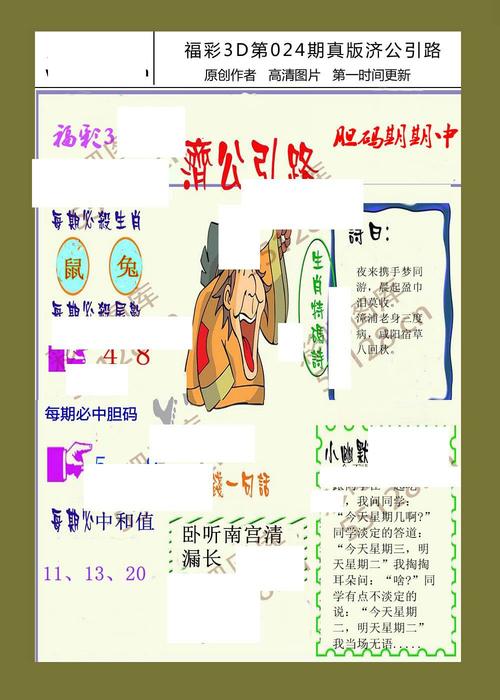 福彩3D第024期真版济公引路
原创作者 高清图片 第一时间更新
福彩3
胆码期期中
濟公引路
每期必殺生肖
鼠 兔
每期必殺尾數
4 8
每期必中胆码
5
每期必中和值
11、13、20
生肖特碼詩
詩曰：
夜来携手梦同
游，晨起盈巾
泪莫收。
漳浦老身三度
病，咸阳宿草
八回秋。
一句話
卧听南宫清
漏长
小幽默
，我问同学：
“今天星期几啊?”
同学淡定的答道：
“今天星期三，明
天星期二”我掏掏
耳朵问：“啥?”同
学有点不淡定的
说：“今天星期
二，明天星期二”
我当场无语.....